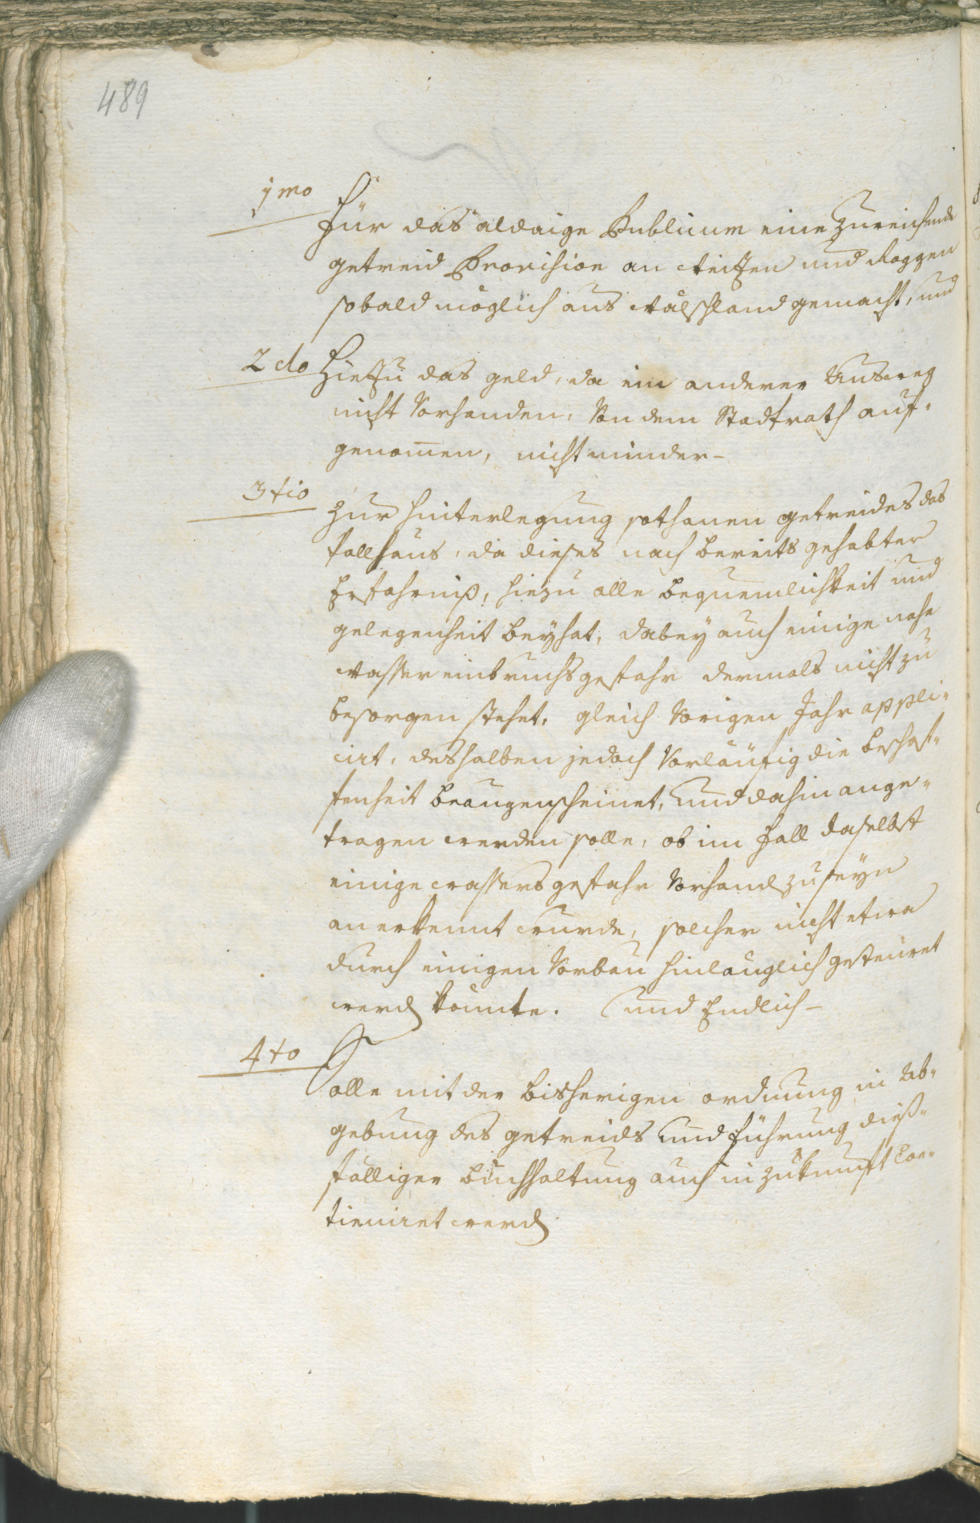 489
1mo
Für das aldaige Publicum eine zureichende
getreid Provision an Weitzen und Roggen
sobald möglich aus Wälschland gemacht, und
2do
Hiezu das geld, da ein anderer Ausweg
nicht Vorhanden, Von dem Stadtrath auf-
genom̄en, nicht minder-
3tio
Zur hinterlegung sothanen getreides das
fallhaus, da dieses nach bereits gehabter
Erfahrniß, hiezu alle bequemlichkeit und
gelegenheit beÿhat, dabeÿ auch einige nahe
Wasser einbruchsgefahr dermals nicht zu
besorgen stehet, gleich Vorigen Jahr appli-
cirt, deshalben jedoch Vorläufig die beschaf-
fenheit beaugenscheinet, und dahin ange-
tragen werden solle, ob im Fall daselbst
einige wassersgefahr Vorhand zu seÿn
anerkennt wurde, solcher nicht etwa
durch einigen Vorbau hinlänglich gesteuret
werd könnte. Und Endlich-
4to
Solle mit der bisherigen ordnung in Ab-
gebung des getreids und führung dieß-
fälliger buchhaltung auch in zukunft Con-
tieniret werd